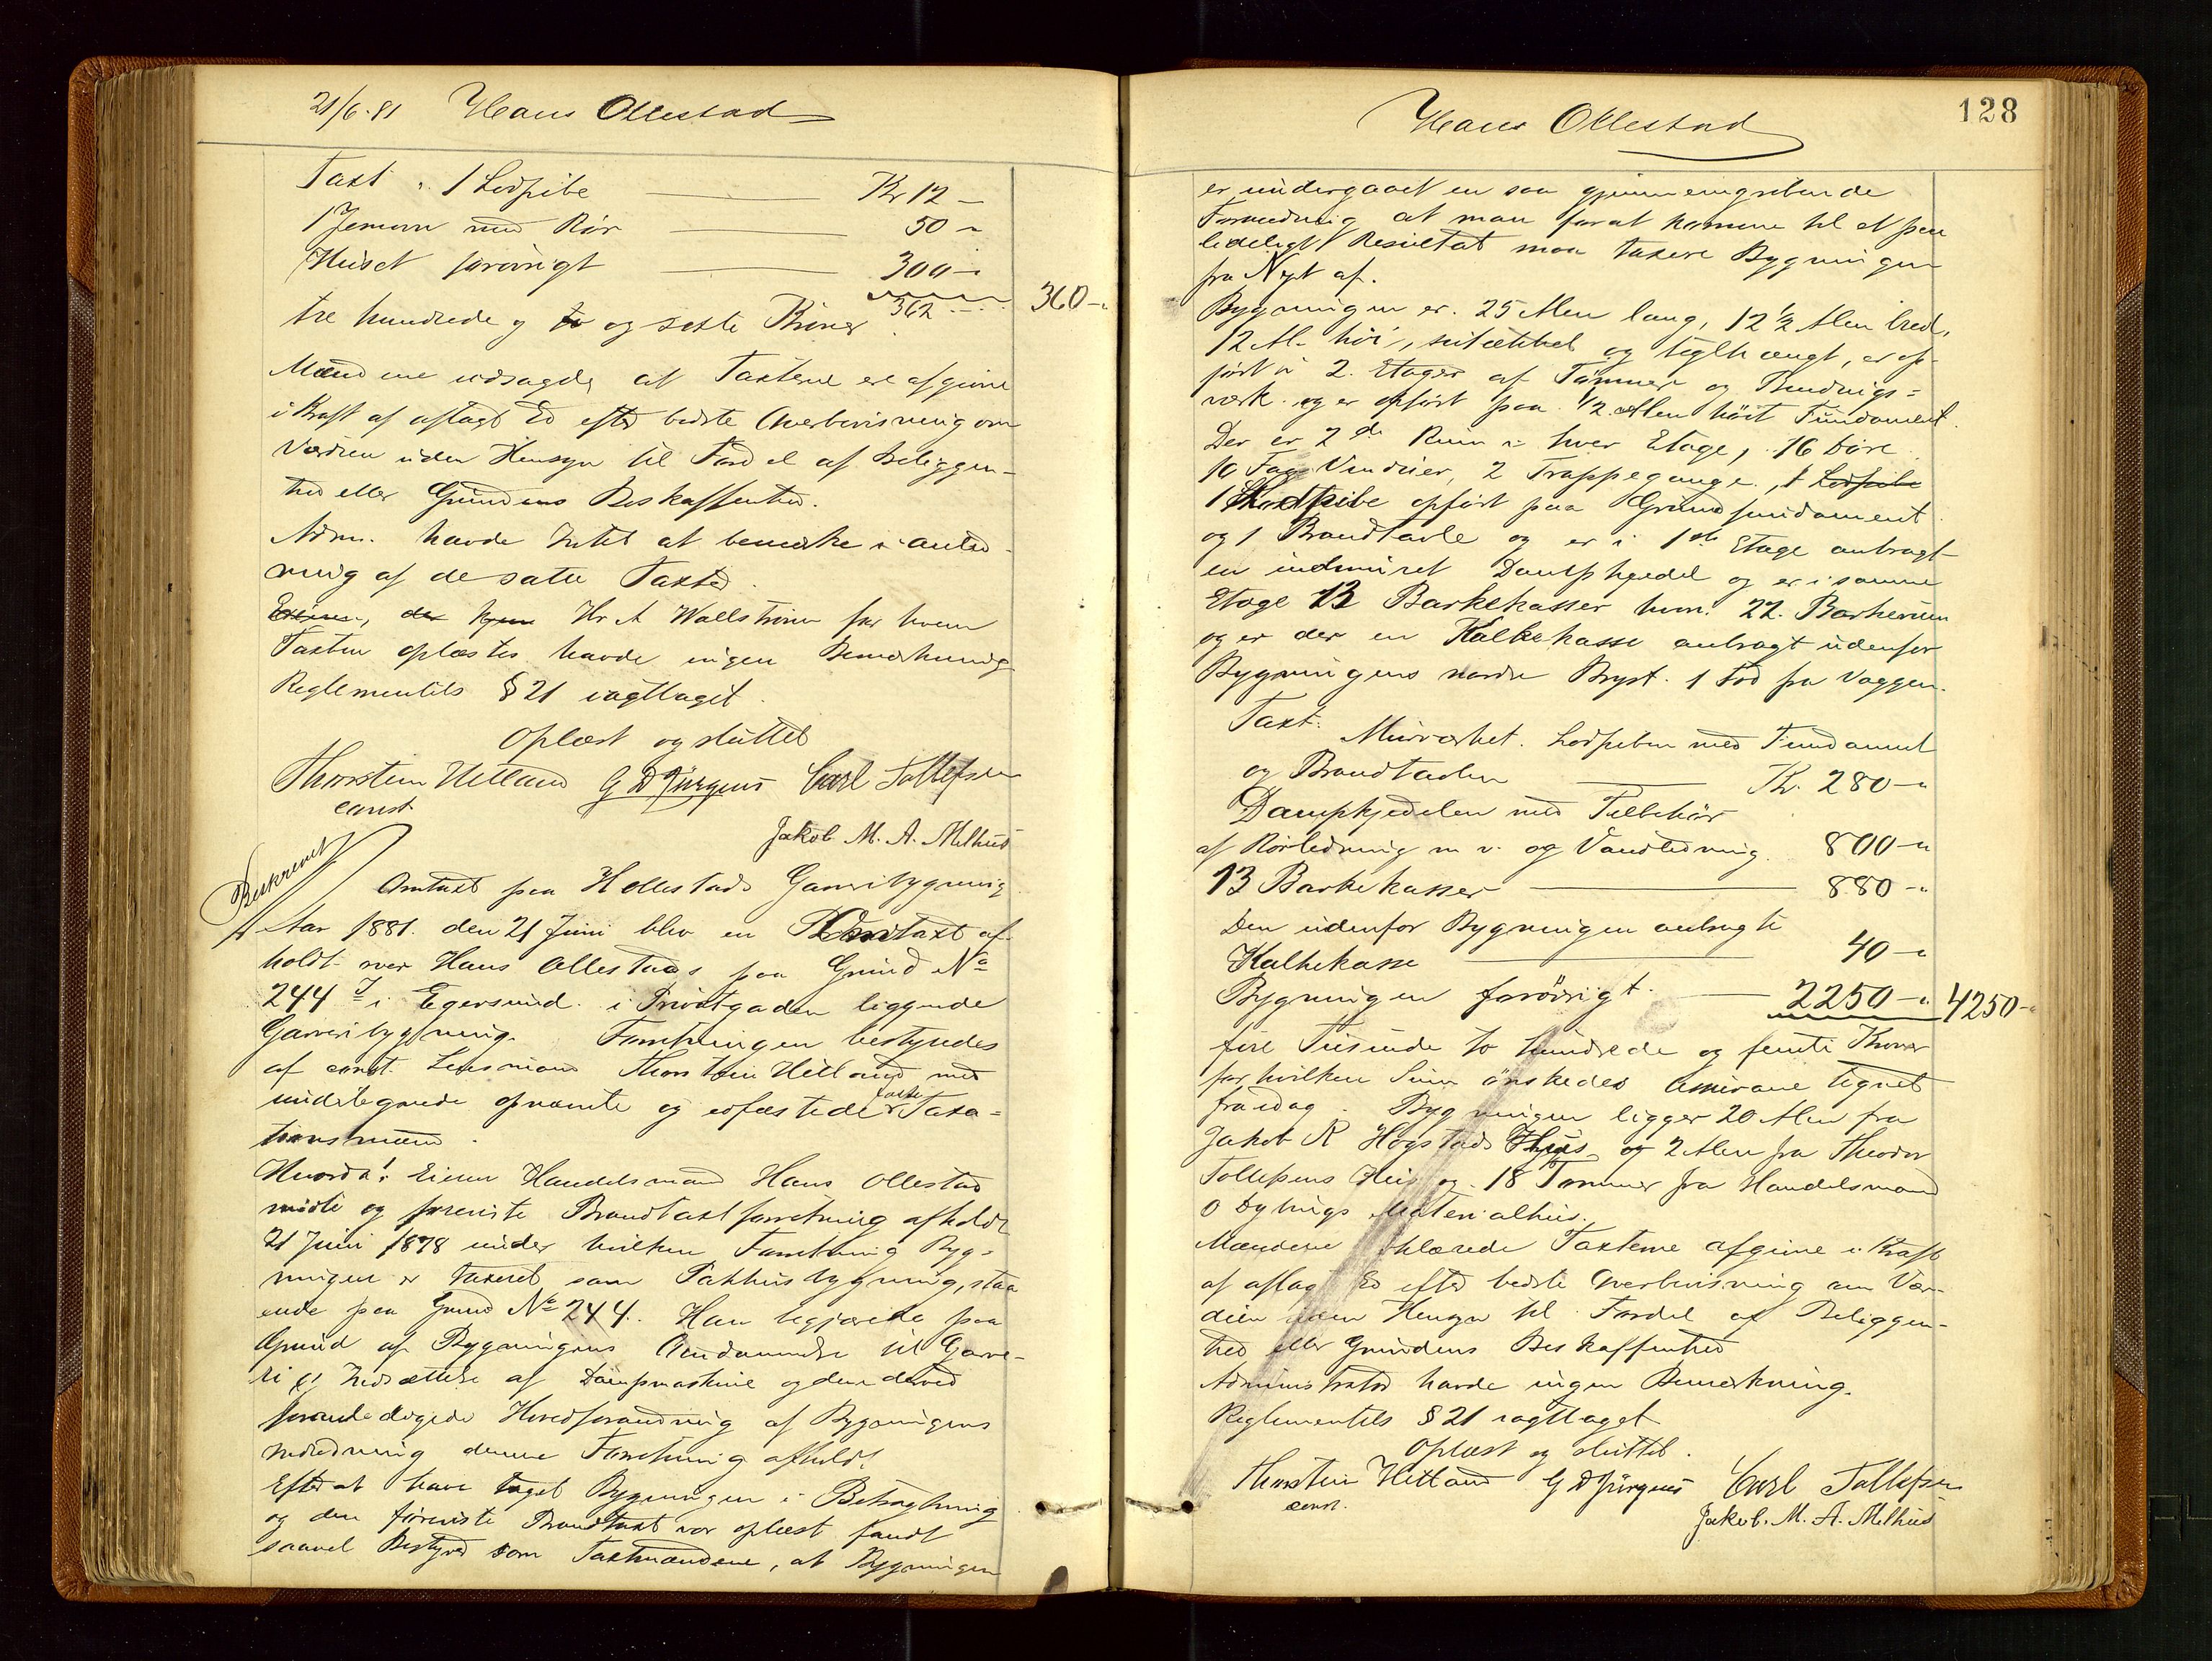 21/6.81 Hans Ollestad
Taxt: 1 Lodpibe Kr 12 -
1 Jernovn med Rör 50 -
Huset forövrigt 300 -
362 360 -
tre hundrede og to og sexti Kroner
Mændene udsagde at Taxterne ere afgivne
i Kraft af aflagt Ed efter bedste Overbevisning om
Værdien uden Hensyn til Fordel af Beliggen-
hed eller Grundens Beskaffenhed.
Adm. havde Intet at bemærke i anled-
ning af de satte Taxter.
Hr A Wallström for hvem
Taxten oplæstes havde ingen Bemærkning
Reglementets § 21 iagttaget.
Oplæst og sluttet
Thorstein Hetland G D Jürgens Carl Tollefsen
const
Jakob M. A. Melhus
Beskrevet
Omtaxt paa H Ollestads Garveribygning
Aar 1881. den 21 Juni blev en Omtaxt af-
holdt over Hans Ollestads paa Grund No
244 i Egersund i Privatgaden liggende
Garveribygning. Forretningen bestyredes
af const. Lensmand Thorstein Hetland med
undertegnede opnævnte og edfæstede faste Taxa-
tionsmænd.
Hvorda! Eieren Handelsmand Hans Ollestad
mödte og foreviste Brandtaxtforretning afholdt
21 Juni 1878 under hvilken Forretning Byg-
ningen er taxeret som Pakhusbygning, staa
ende paa Grund No 244. Han begjærede paa
Grund af Bygningens Omdannelse til Garve-
ri og Indsættelse af Dampmaskine og den derved
foranledigede Hovedforandring af Bygningens
Indredning denne Forretning afholdt.
Efter at have taget Bygningen i Betragtning
og den foreviste Brandtaxt var oplæst fandt
saavel Bestyrer som Taxtmændene, at Bygningen
Hans Ollestad 128
er undergaaet en saa gjennemgribende
Forandring at man for at komme til et paa
lideligt Resultat maa taxere Bygningen
fra Nyt af.
Bygningen er 25 Alen lang, 12 1/2 Alen bred,
12 Al. höi, og teglhængt, er op-
fört i 2 Etager af Tömmer og Bindings=
værk og er opfört paa 1/2 Alen höit Fundament.
Der er 2de Rum i hver Etage, 16 Döre
10 Fag Vinduer, 2 Trappegange, 1 Lodpibe
1 Lodpibe opfört paa Grundfundament
og 1 Brandtavle og er i 1ste Etage anbragt
en indmuret Dampkjedel og er i samme
Etage 13 Barkekasser hvor. 22. Barkerum
og er der en Kalkekasse anbragt udenfor
Bygningens nordre Bryst. 1 Fod fra Væggen.
Taxt: Murværket. Lodpiben med Fundament
og Brandtavlen Kr. 280 -
Dampkjedelen med Tilbehör
af Rörledning m v. og Vandledning 800 -
13 Barkekasser 880 -
Den udenfor Bygningen anbragte
Kalkekasse 40 -
Bygningen forövrigt 2250 - 4250 -
fire Tusinde to hundrede og femti Kroner
for hvilken Sum önskedes Assurance tegnet
fra idag. Bygningen ligger 20 Alen fra
Jakob R Högstads Huus og 2 Alen fra Theodor
Tollefsens Huus og 18 Tommer fra Handelsmand
O Dybings Materialhus.
Mændene erklærede Taxterne afgivne i Kraft
af aflagt Ed efter bedste Overbevisning om Vær-
dien uden Hensyn til Fordel af Beliggen-
hed eller Grundens Beskaffenhed
Administrator havde ingen Bemærkning.
Reglementets § 21 iagttaget
Oplæst og sluttet.
Thorstein Hetland G D Jürgens Carl Tollefsen
const.
Jakob. M. A. Melhus